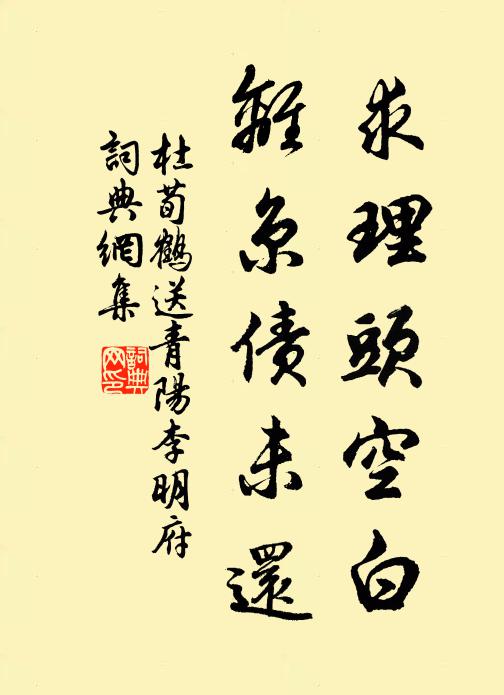 求理頭空白
離京債未還
杜荀鶴送青陽李明府
詞典網集
詞典網印